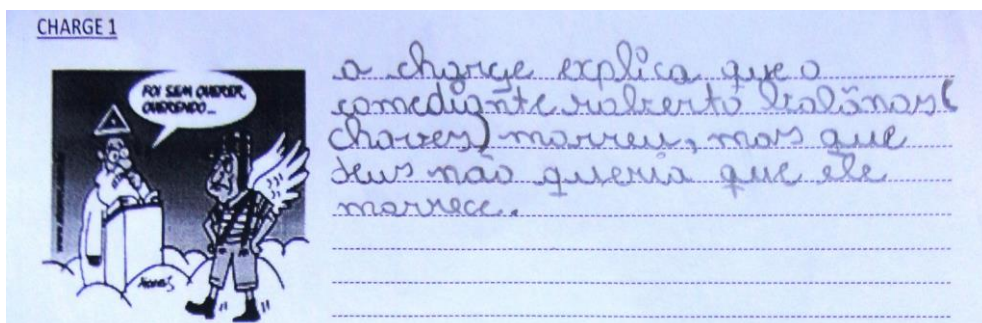 CHARGE 1
FOI SEM QUERER,
QUERENDO...
a charge explica que o
comediante roberto bolãnos(
chaves) morreu, mas que
deus não queria que ele
morrece.